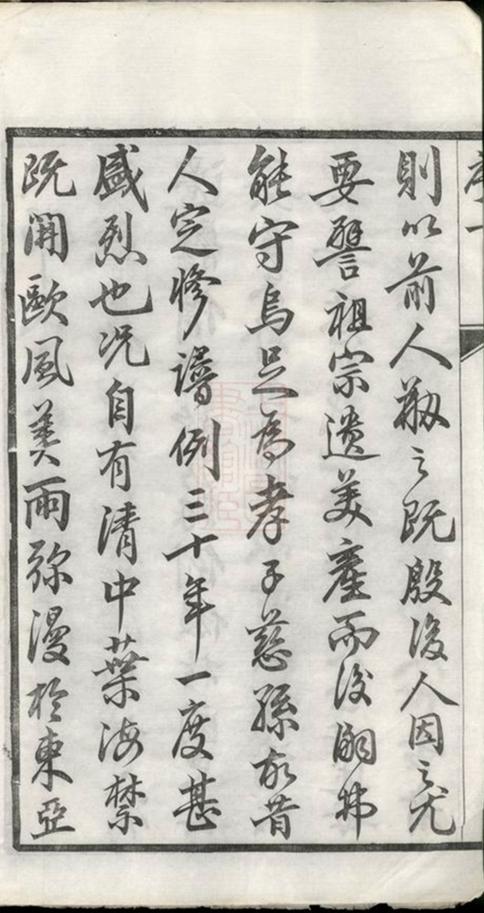 序一
則以前人刱之既殷後人因之尤
要譬祖宗遺美產而後嗣弗
能守烏足為孝子慈孫故昔
人定修譜例三十年一度甚
盛烈也况自有清中葉海禁
既開歐風美雨弥漫於東亞